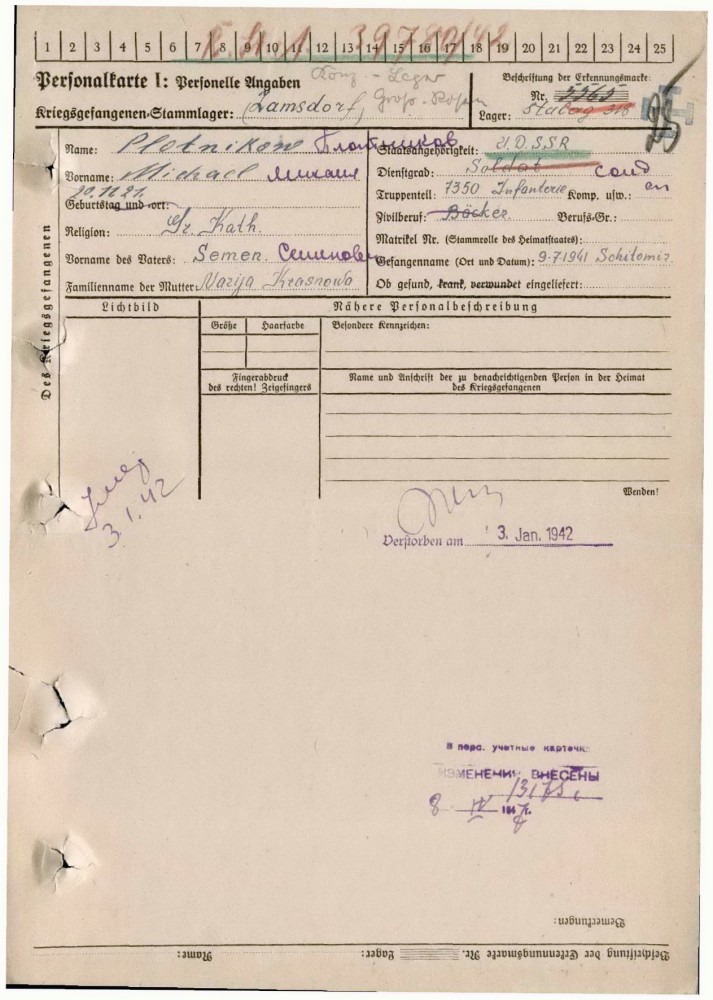 R. St. A. 39780/42
1 2 3 4 5 6 7 8 9 10 11 12 13 14 15 16 17 18 19 20 21 22 23 24 25
Personalkarte I: Personelle Angaben
Konz.-Lager
Beschriftung der Erkennungsmarke:
Nr. 5565
Kriegsgefangenen-Stammlager: (Lamsdorf) Groß-Rosen
Lager: Stalag 318
Des Kriegsgefangenen
Name: Plotnikow Плотников
Staatsangehörigkeit: U.D.S.S.R
Vorname: Michael Михаил
Dienstgrad: Soldat солд
20.11.21.
Geburtstag und -ort:
Truppenteil: 1350 Infanterie Komp. usw.:
Religion: Gr. Kath.
Zivilberuf: Bäcker Berufs-Gr.:
Matrikel Nr. (Stammrolle des Heimatstaates):
Vorname des Vaters: Semen. Семенович
Gefangenname (Ort und Datum): 9-7-1941 Schitomir
Familienname der Mutter: Marija Krasnowa
Ob gesund, krank, verwundet eingeliefert:
Lichtbild
Nähere Personalbeschreibung
Größe Haarfarbe Besondere Kennzeichen:
Fingerabdruck
des rechten! Zeigefingers
Name und Anschrift der zu benachrichtigenden Person in der Heimat
des Kriegsgefangenen
Wenden!
3.1.42
Verstorben am 3. Jan. 1942
В перс. учетные карточки
ИЗМЕНЕНИЯ ВНЕСЕНЫ
8 IV 1947г.
Bemerkungen:
Beschriftung der Erkennungsmarke Nr. Lager: Name: